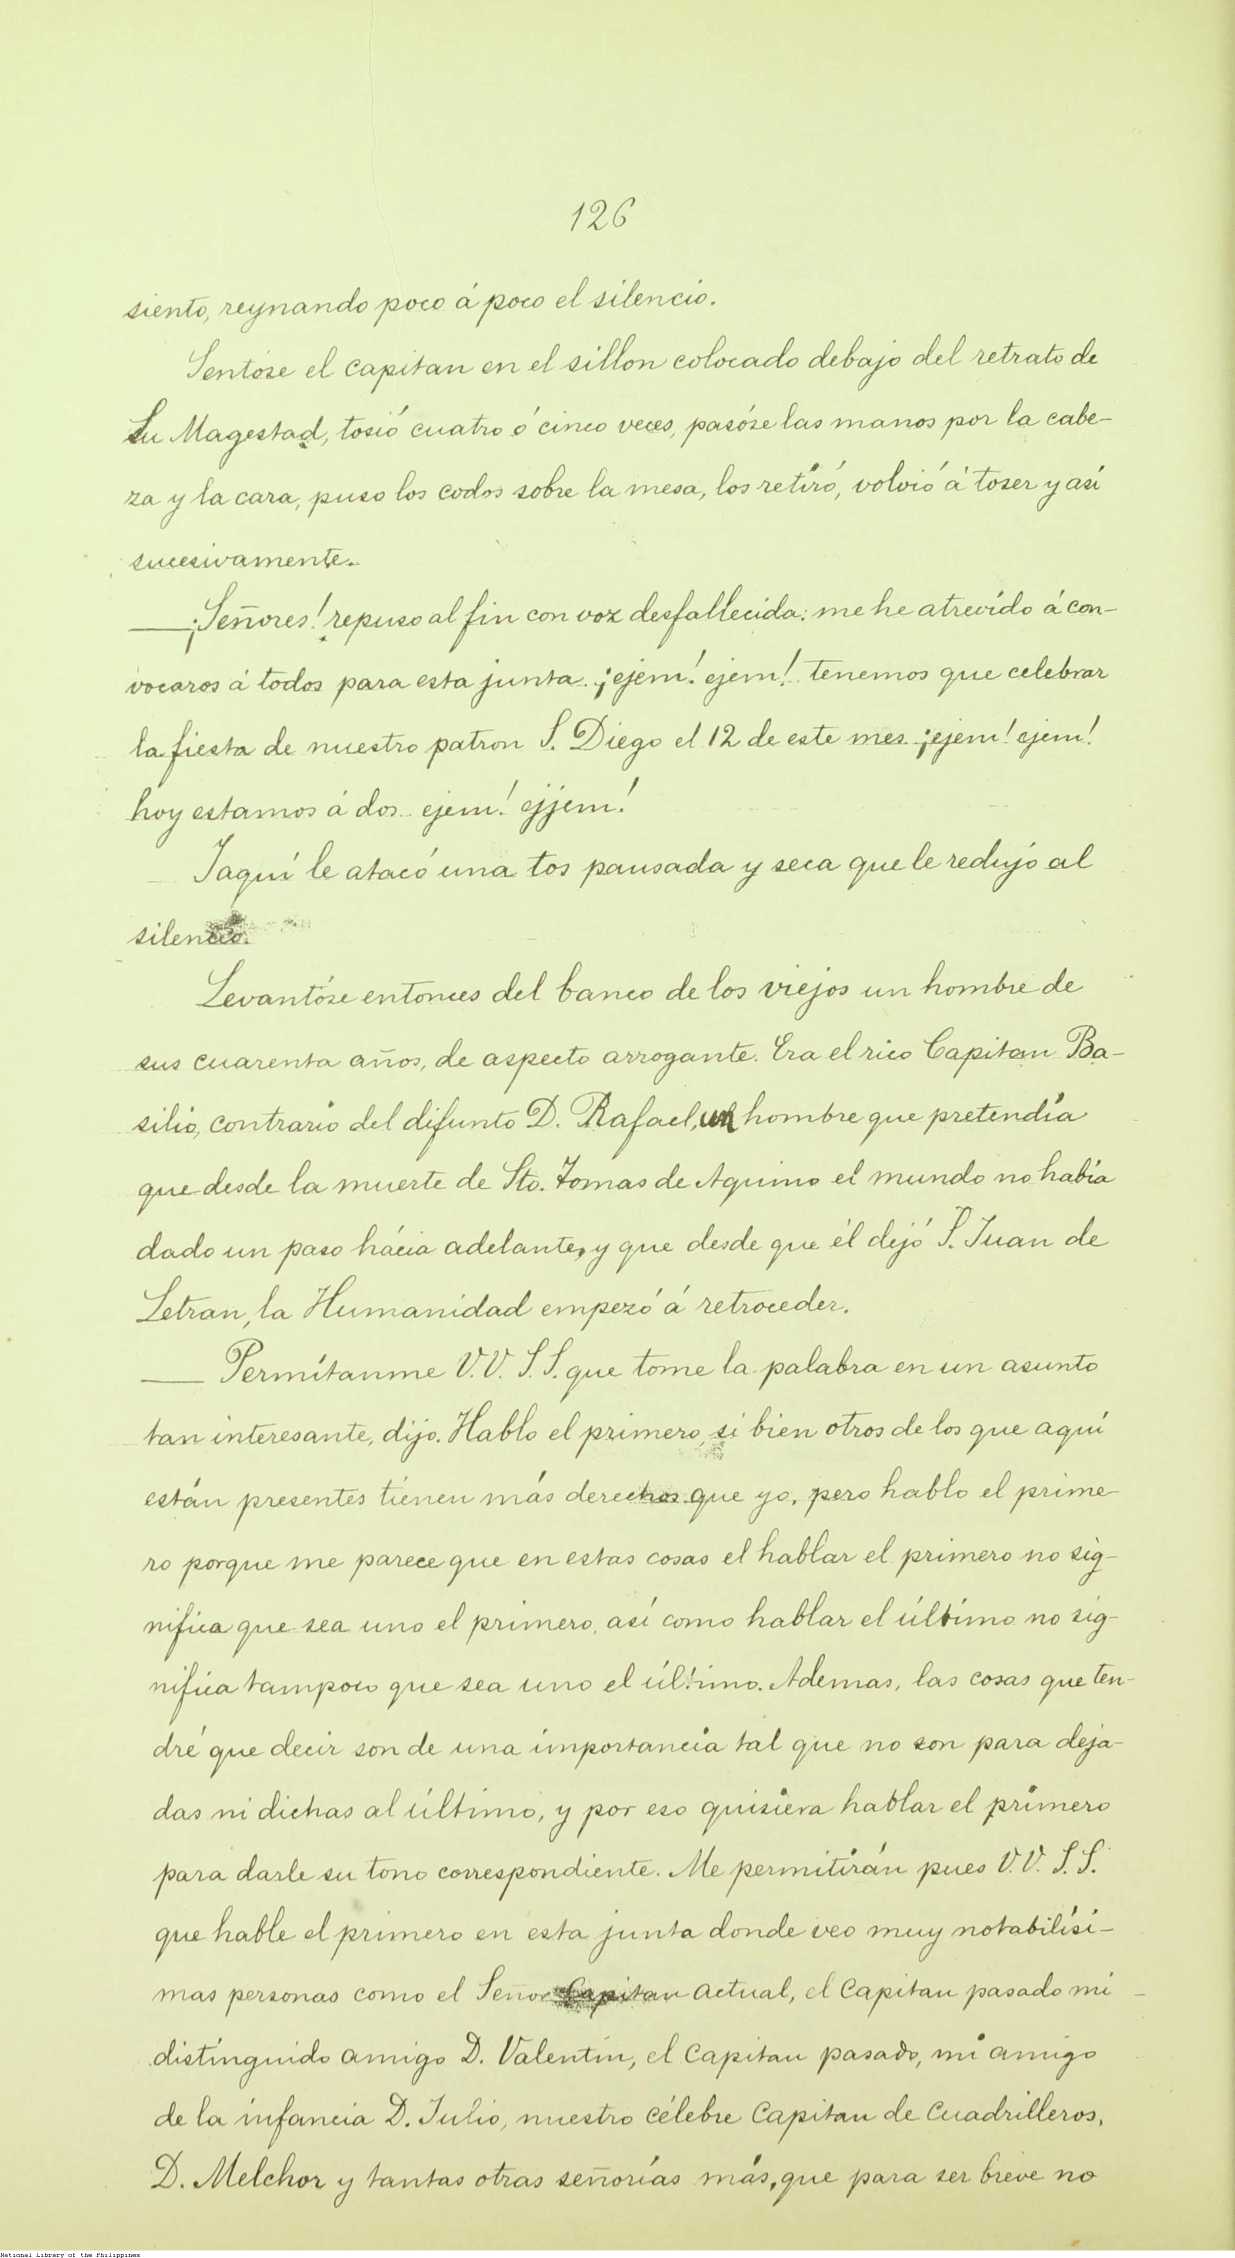 126
siento, reynando poco á poco el silencio.
Sentóse el capitan en el sillon colocado debajo del retrato de
Su Magestad, tosió cuatro ó cinco veces, pasóse las manos por la cabe-
za y la cara, puso los codos sobre la mesa, los retiró, volvió á toser y así
sucesivamente.
—¡Señores! repuso al fin con voz desfallecida: me he atrevido á con-
vocaros á todos para esta junta.. ¡ejem! ejem! tenemos que celebrar
la fiesta de nuestro patron S. Diego el 12 de este mes.. ¡ejem! ejem!
hoy estamos á dos.. ejem! ejjem!
Y aquí le atacó una tos pausada y seca que le redujo al
silencio.
Levantóse entonces del banco de los viejos un hombre de
sus cuarenta años, de aspecto arrogante. Era el rico Capitan Ba-
silio, contrario del difunto D. Rafael, un hombre que pretendía
que desde la muerte de Sto. Tomas de Aquino el mundo no había
dado un paso hácia adelante, y que desde que él dejó S. Juan de
Letran, la Humanidad empezó á retroceder.
— Permítanme V.V. S.S. que tome la palabra en un asunto
tan interesante, dijo. Hablo el primero, si bien otros de los que aquí
están presentes tienen más derechos que yo, pero hablo el prime-
ro porque me parece que en estas cosas el hablar el primero no sig-
nifica que sea uno el primero, así como hablar el último no sig-
nifica tampoco que sea uno el último. Ademas, las cosas que ten-
dré que decir son de una importancia tal que no son para deja-
das ni dichas al último, y por eso quisiera hablar el primero
para darle su tono correspondiente. Me permitirán pues V.V. S.S.
que hable el primero en esta junta donde veo muy notabilísi-
mas personas como el Señor Capitan actual, el Capitan pasado mi
distinguido amigo D. Valentin, el Capitan pasado, mi amigo
de la infancia D. Julio, nuestro célebre Capitan de Cuadrilleros,
D. Melchor y tantas otras señorías más, que para ser breve no
National Library of the Philippines